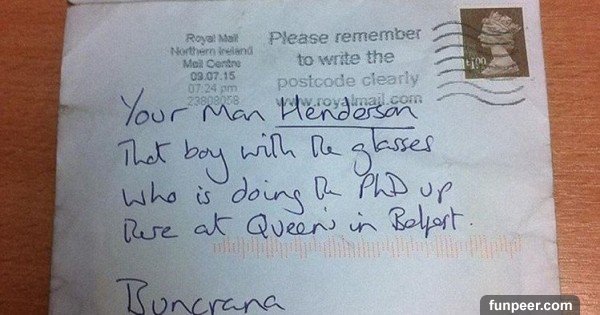 Royal Mail
Northern Ireland
Mail Centre
09.07.15
07:24 pm
23808058
Please remember
to write the
postcode clearly
www.royalmail.com
£1.00
Your Man Henderson
That boy with the glasses
who is doing the PhD up
there at Queen's in Belfast.
Buncrana
funpeer.com